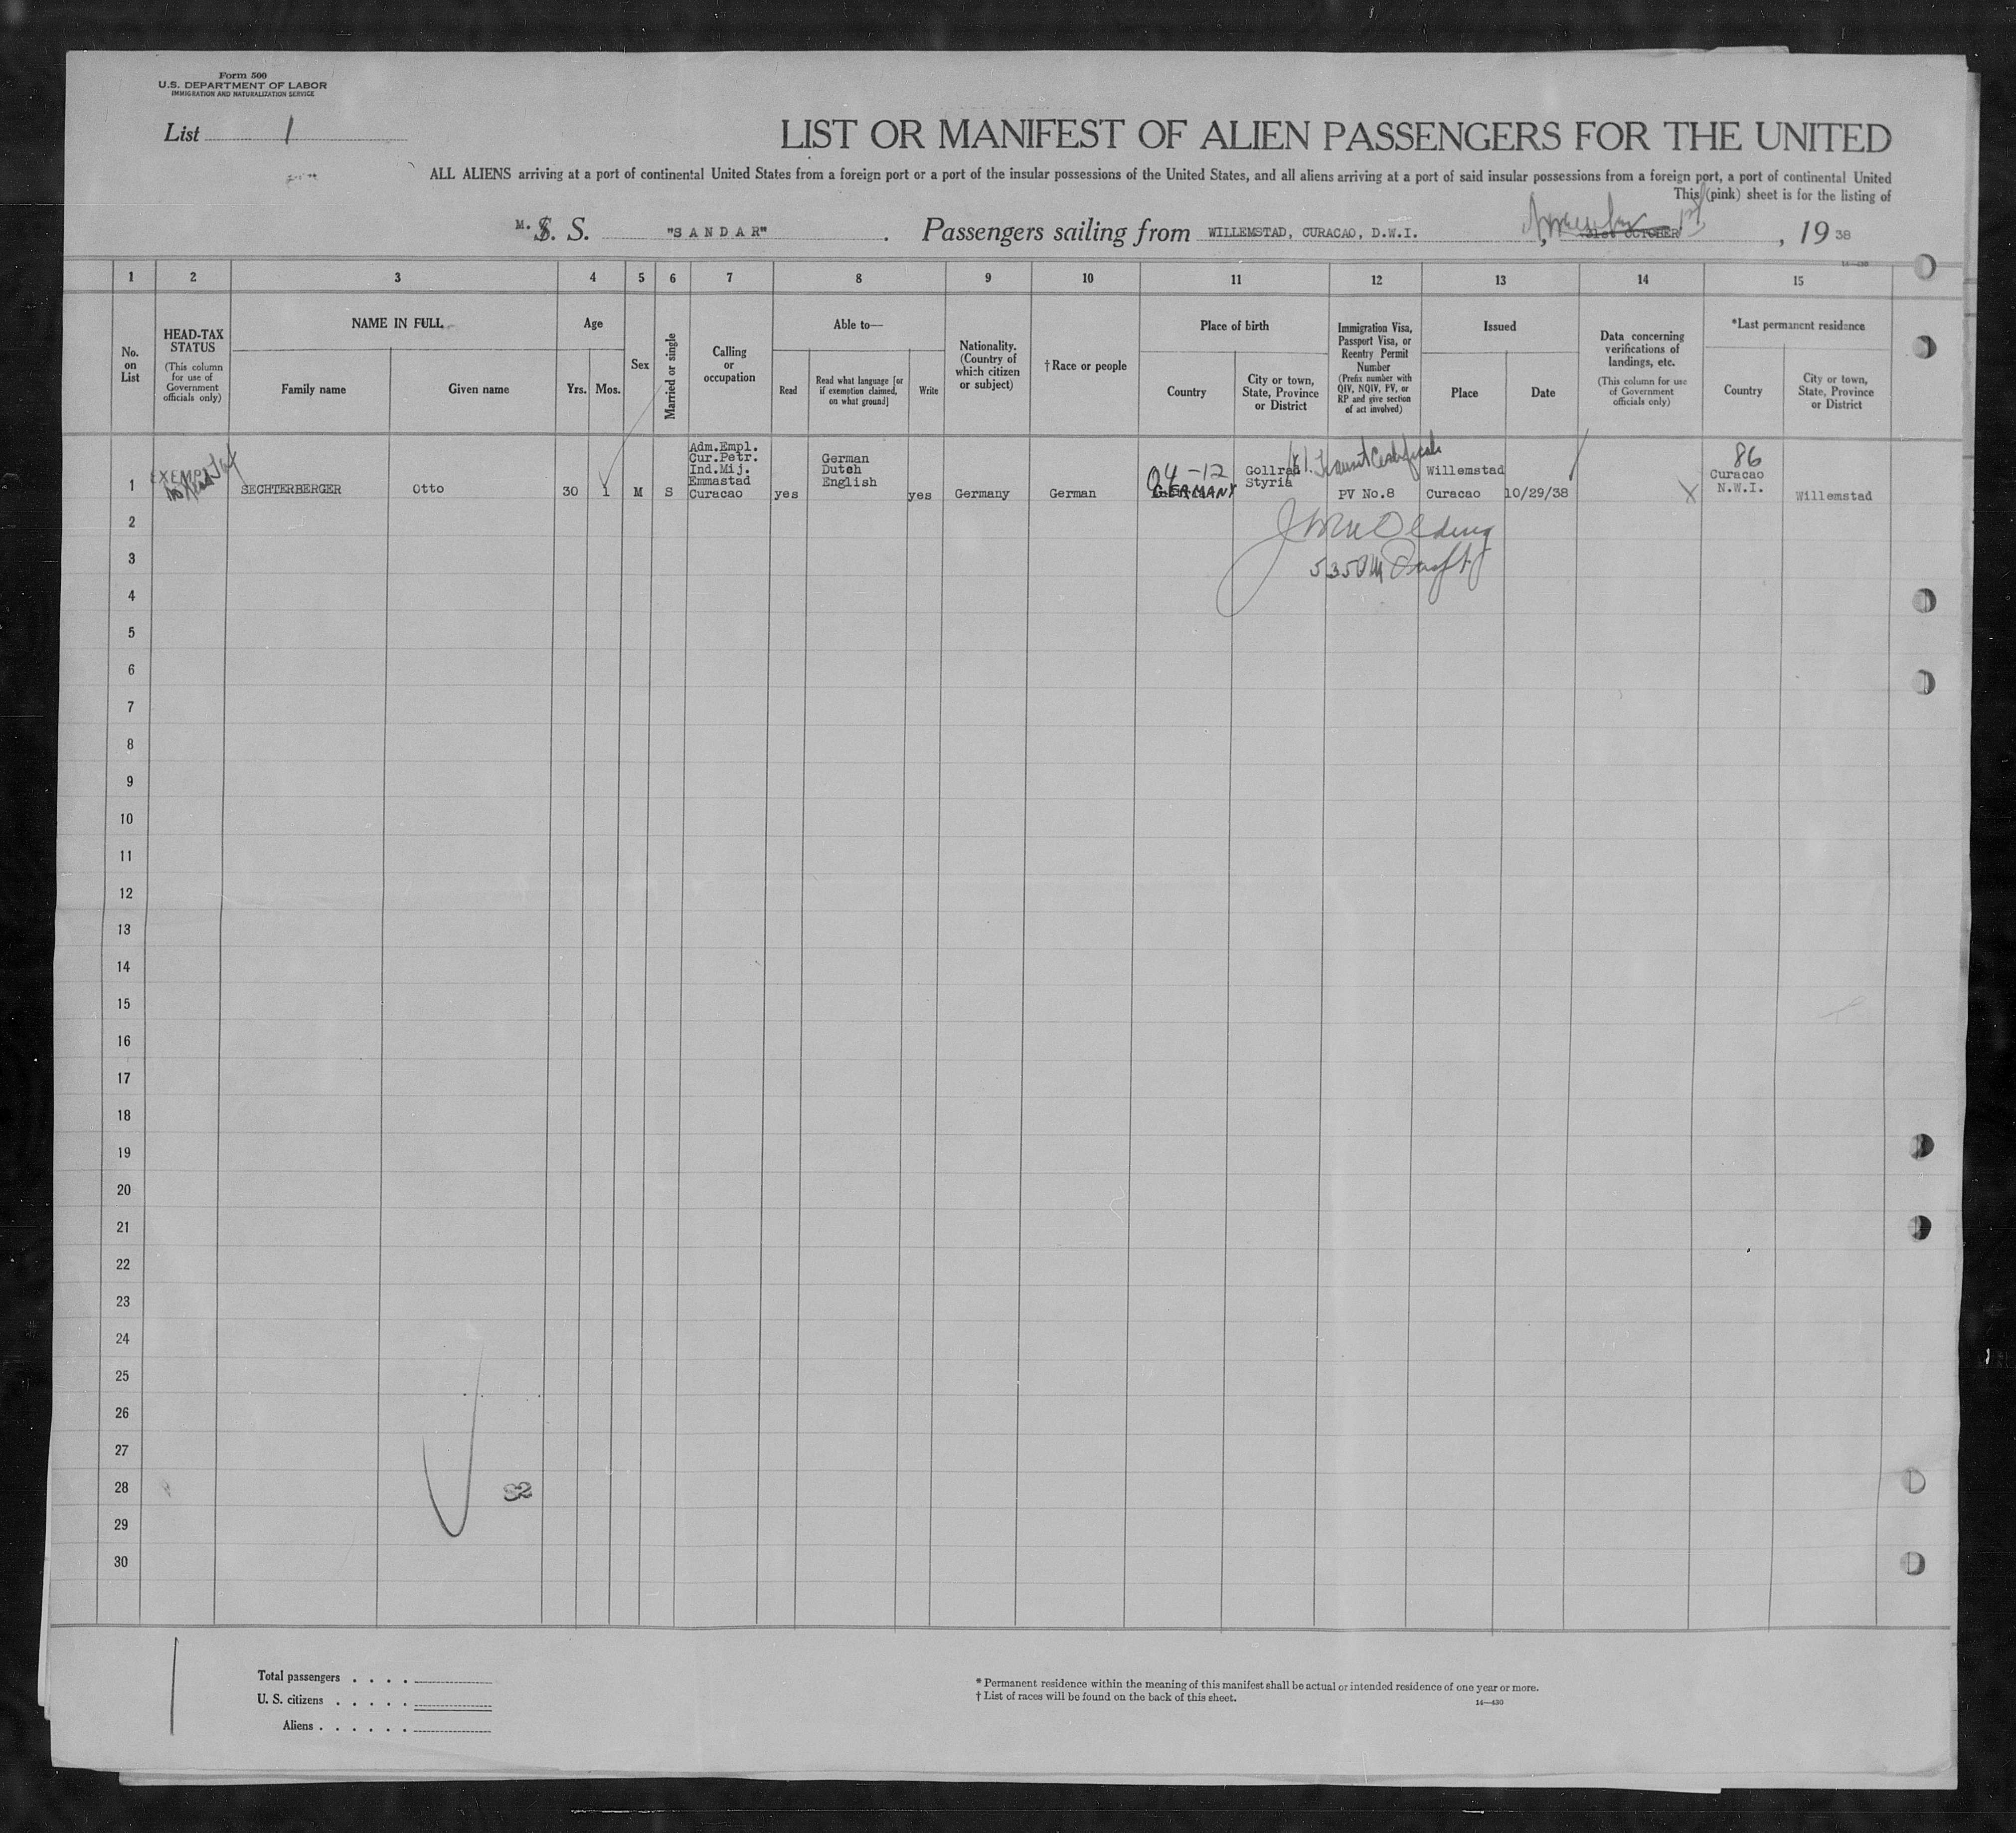 Form 500
U.S. DEPARTMENT OF LABOR
IMMIGRATION AND NATURALIZATION SERVICE
List 1
LIST OR MANIFEST OF ALIEN PASSENGERS FOR THE UNITED
ALL ALIENS arriving at a port of continental United States from a foreign port or a port of the insular possessions of the United States, and all aliens arriving at a port of said insular possessions from a foreign port, a port of continental United
This (pink) sheet is for the listing of
M. S. S. "SANDAR" . Passengers sailing from WILLEMSTAD, CURACAO, D.W.I. , November 1st 31st OCTOBER , 19 38
14—430
1 2 3 4 5 6 7 8 9 10 11 12 13 14 15
No. on List
HEAD-TAX STATUS
(This column for use of Government officials only)
NAME IN FULL
Family name
Given name
Age
Yrs.
Mos.
Sex
Married or single
Calling or occupation
Able to—
Read
Read what language [or if exemption claimed, on what ground]
Write
Nationality. (Country of which citizen or subject)
† Race or people
Place of birth
Country
City or town, State, Province or District
Immigration Visa, Passport Visa, or Reentry Permit Number
(Prefix number with QIV, NQIV, PV, or RP and give section of act involved)
Issued
Place
Date
Data concerning verifications of landings, etc.
(This column for use of Government officials only)
*Last permanent residence
Country
City or town, State, Province or District
1
EXEMPT
No Head Tax
SECHTERBERGER
Otto
30
1
M
S
Adm.Empl.
Cur.Petr.
Ind.Mij.
Emmastad
Curacao
yes
German
Dutch
English
yes
Germany
German
04-12
GERMANY
Gollrad
Styria
Transit Certificate
PV No.8
Willemstad
Curacao
10/29/38
X
86
Curacao
N.W.I.
Willemstad
2
3
535 PM
4
5
6
7
8
9
10
11
12
13
14
15
16
17
18
19
20
21
22
23
24
25
26
27
28
82
29
30
Total passengers . . . .
U. S. citizens . . . . .
Aliens . . . . . .
* Permanent residence within the meaning of this manifest shall be actual or intended residence of one year or more.
† List of races will be found on the back of this sheet.
14—430